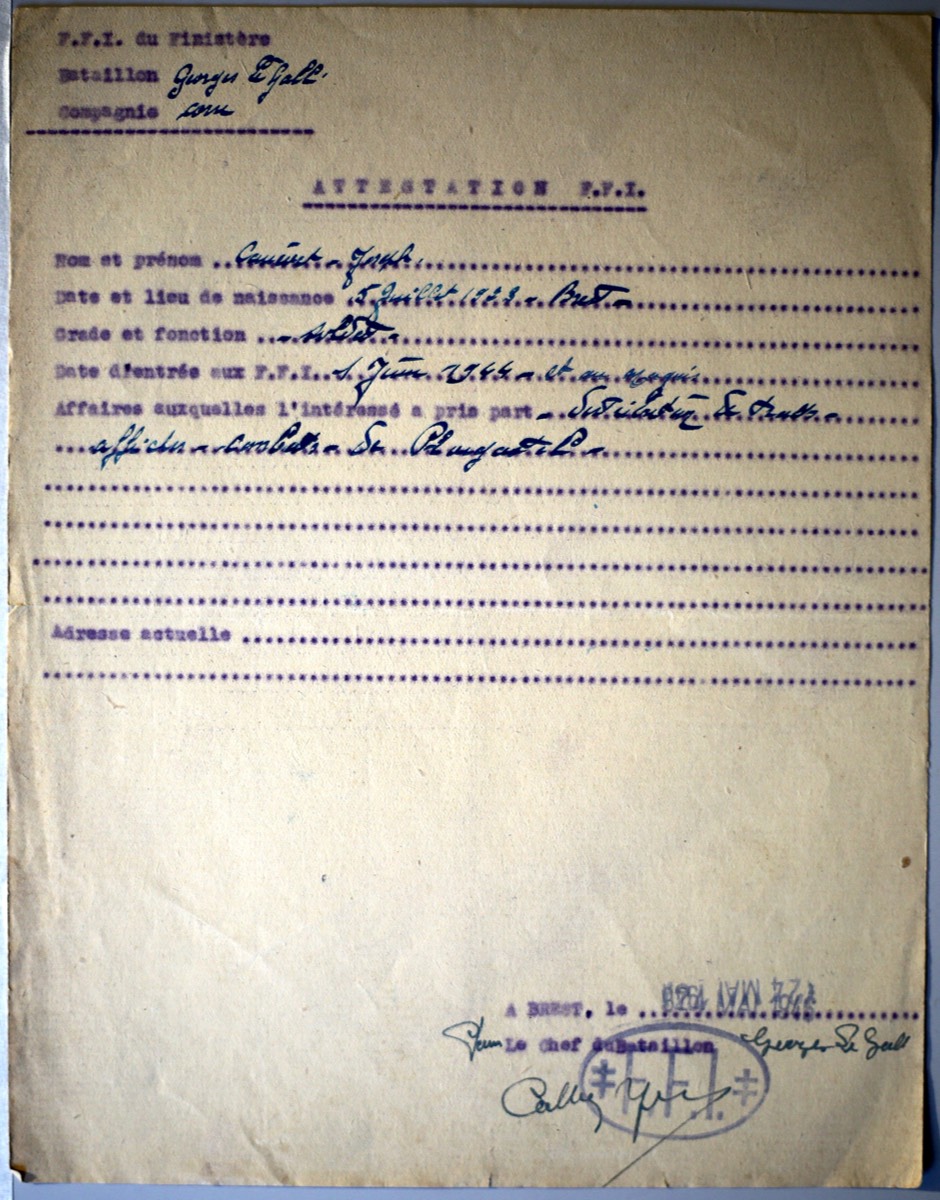 F.F.I. du Finistère
Bataillon Georges Le Gall.
Compagnie
ATTESTATION F.F.I.
Nom et prénom Joseph
Date et lieu de naissance 5 Juillet - Brest -
Grade et fonction - soldat -
Date d'entrée aux F.F.I. 1 Juin 1944 - et au maquis
Affaires auxquelles l'intéressé a pris part - distribution de tracts -
affiches - combats de Plougastel -
Adresse actuelle
A BREST, le 24 MAI
Pour Le Chef du Bataillon Georges Le Gall
F.F.I.